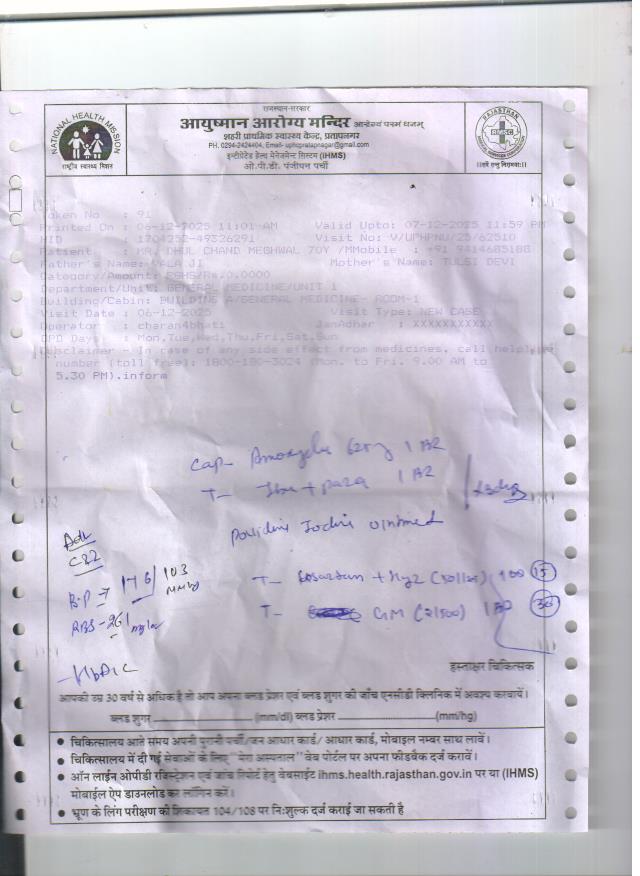 राजस्थान-सरकार
आयुष्मान आरोग्य मन्दिर आरोग्यं परमं धनम्
शहरी प्राथमिक स्वास्थ्य केन्द्र, प्रतापनगर
PH. 0294-2424404, Email- uphcpratapnagar@gmail.com
इन्टीग्रेटेड हेल्थ मेनेजमेन्ट सिस्टम (IHMS)
ओ.पी.डी. पंजीयन पर्ची
NATIONAL HEALTH MISSION
राष्ट्रीय स्वास्थ्य मिशन
RAJASTHAN
Token No : 91
Printed On : 06-12-2025 11:01 AM Valid Upto: 07-12-2025 11:59 PM
HID : 1704252-49326291 Visit No: V/UPHPNU/25/62510
Patient : MR. DHUL CHAND MEGHWAL 70Y /M Mobile : +91 9414685188
Father's Name: VALA JI Mother's Name: TULSI DEVI
Category/Amount: RGHS/Rs.0.0000
Department/Unit: GENERAL MEDICINE/UNIT 1
Building/Cabin: BUILDING A/GENERAL MEDICINE- ROOM-1
Visit Date : 06-12-2025 Visit Type: NEW CASE
Operator : charan4bhati JanAdhar : XXXXXXXXXXX
OPD Days : Mon,Tue,Wed,Thu,Fri,Sat,Sun
Disclaimer - In case of any side effect from medicines, call helpline
number (toll free): 1800-180-3024 (Mon. to Fri. 9.00 AM to
5.30 PM).inform
Cap- 625 1
T- + para 1
Povidine Iodine ointment
Adv
B.P → 176/103 mmHg
T- Losartan + Hyz (50/12.5) 15
RBS - 261 mg/dl
T- GM (2/500) 30
- HbA1C
हस्ताक्षर चिकित्सक
आपकी उम्र 30 वर्ष से अधिक है तो आप अपना ब्लड प्रेशर एवं ब्लड शुगर की जाँच एनसीडी क्लिनिक में अवश्य करवायें।
ब्लड शुगर (mm/dl) ब्लड प्रेशर (mm/hg)
● चिकित्सालय आते समय अपनी पुरानी पर्ची/जन आधार कार्ड/ आधार कार्ड, मोबाइल नम्बर साथ लावें।
● चिकित्सालय में दी गई सेवाओं के लिए "मेरा अस्पताल" वेब पोर्टल पर अपना फीडबैक दर्ज करावें।
● ऑन लाईन ओपीडी रजिस्ट्रेशन एवं जांच रिपोर्ट हेतु वेबसाईट ihms.health.rajasthan.gov.in पर या (IHMS)
मोबाईल ऐप डाउनलोड कर लॉगिन करें।
● भ्रूण के लिंग परीक्षण की शिकायत 104/108 पर नि:शुल्क दर्ज कराई जा सकती है